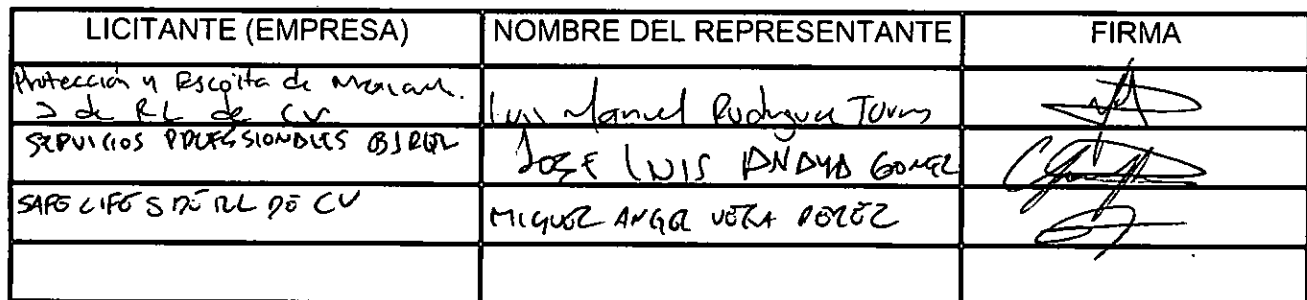 LICITANTE (EMPRESA) NOMBRE DEL REPRESENTANTE FIRMA
Protección y Escolta de
S de RL de CV Luis Manuel Rodriguez Torres
SERVICIOS PROFESIONALES JOSE LUIS ANAYA GOMEZ
SAFE LIFE S DE RL DE CV MIGUEL ANGEL VERA PEREZ